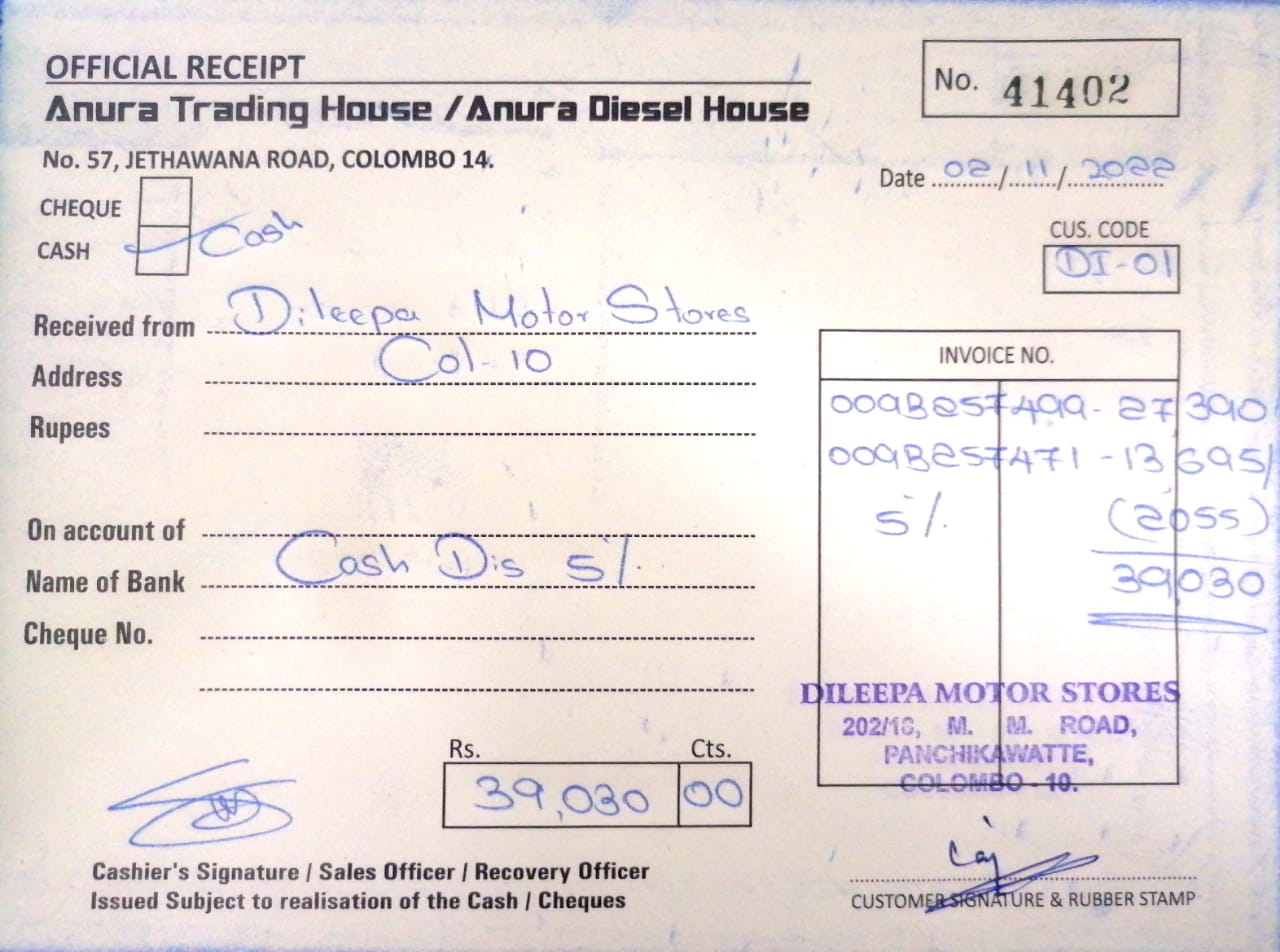 OFFICIAL RECEIPT
Anura Trading House / Anura Diesel House
No. 57, JETHAWANA ROAD, COLOMBO 14.
No. 41402
Date 02/11/2022
CHEQUE
CASH Cash
CUS. CODE
DI-01
Received from Dileepa Motor Stores
Address Col-10
Rupees
On account of
Name of Bank Cash Dis 5%
Cheque No.
INVOICE NO.
009B257499- 27,390
009B257471 -13,695/
5% (2055)
39,030
DILEEPA MOTOR STORES
202/18, M. M. ROAD,
PANCHIKAWATTE,
COLOMBO - 10.
Rs. Cts.
39,030 00
Cashier's Signature / Sales Officer / Recovery Officer
Issued Subject to realisation of the Cash / Cheques
CUSTOMER SIGNATURE & RUBBER STAMP